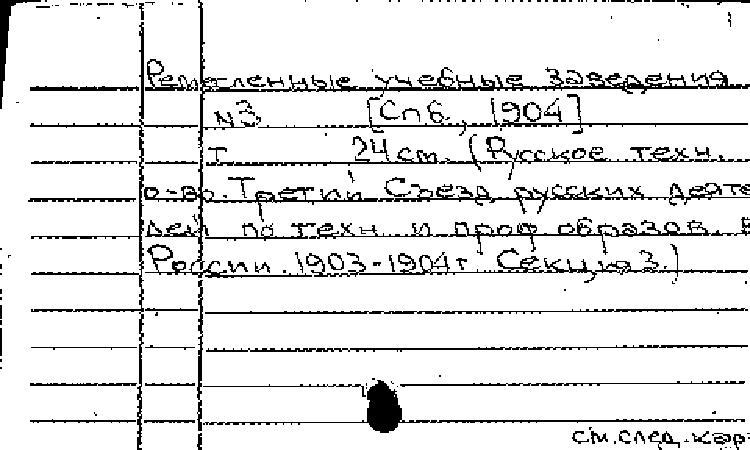 Ремесленные учебные заведения
№3 [Спб., 1904]
I 24 см. (Русское техн.
о-во. Третий Съезд русских деяте
лей по техн и проф образов. в
России. 1903-1904г Секция 3.)
см. след. кар